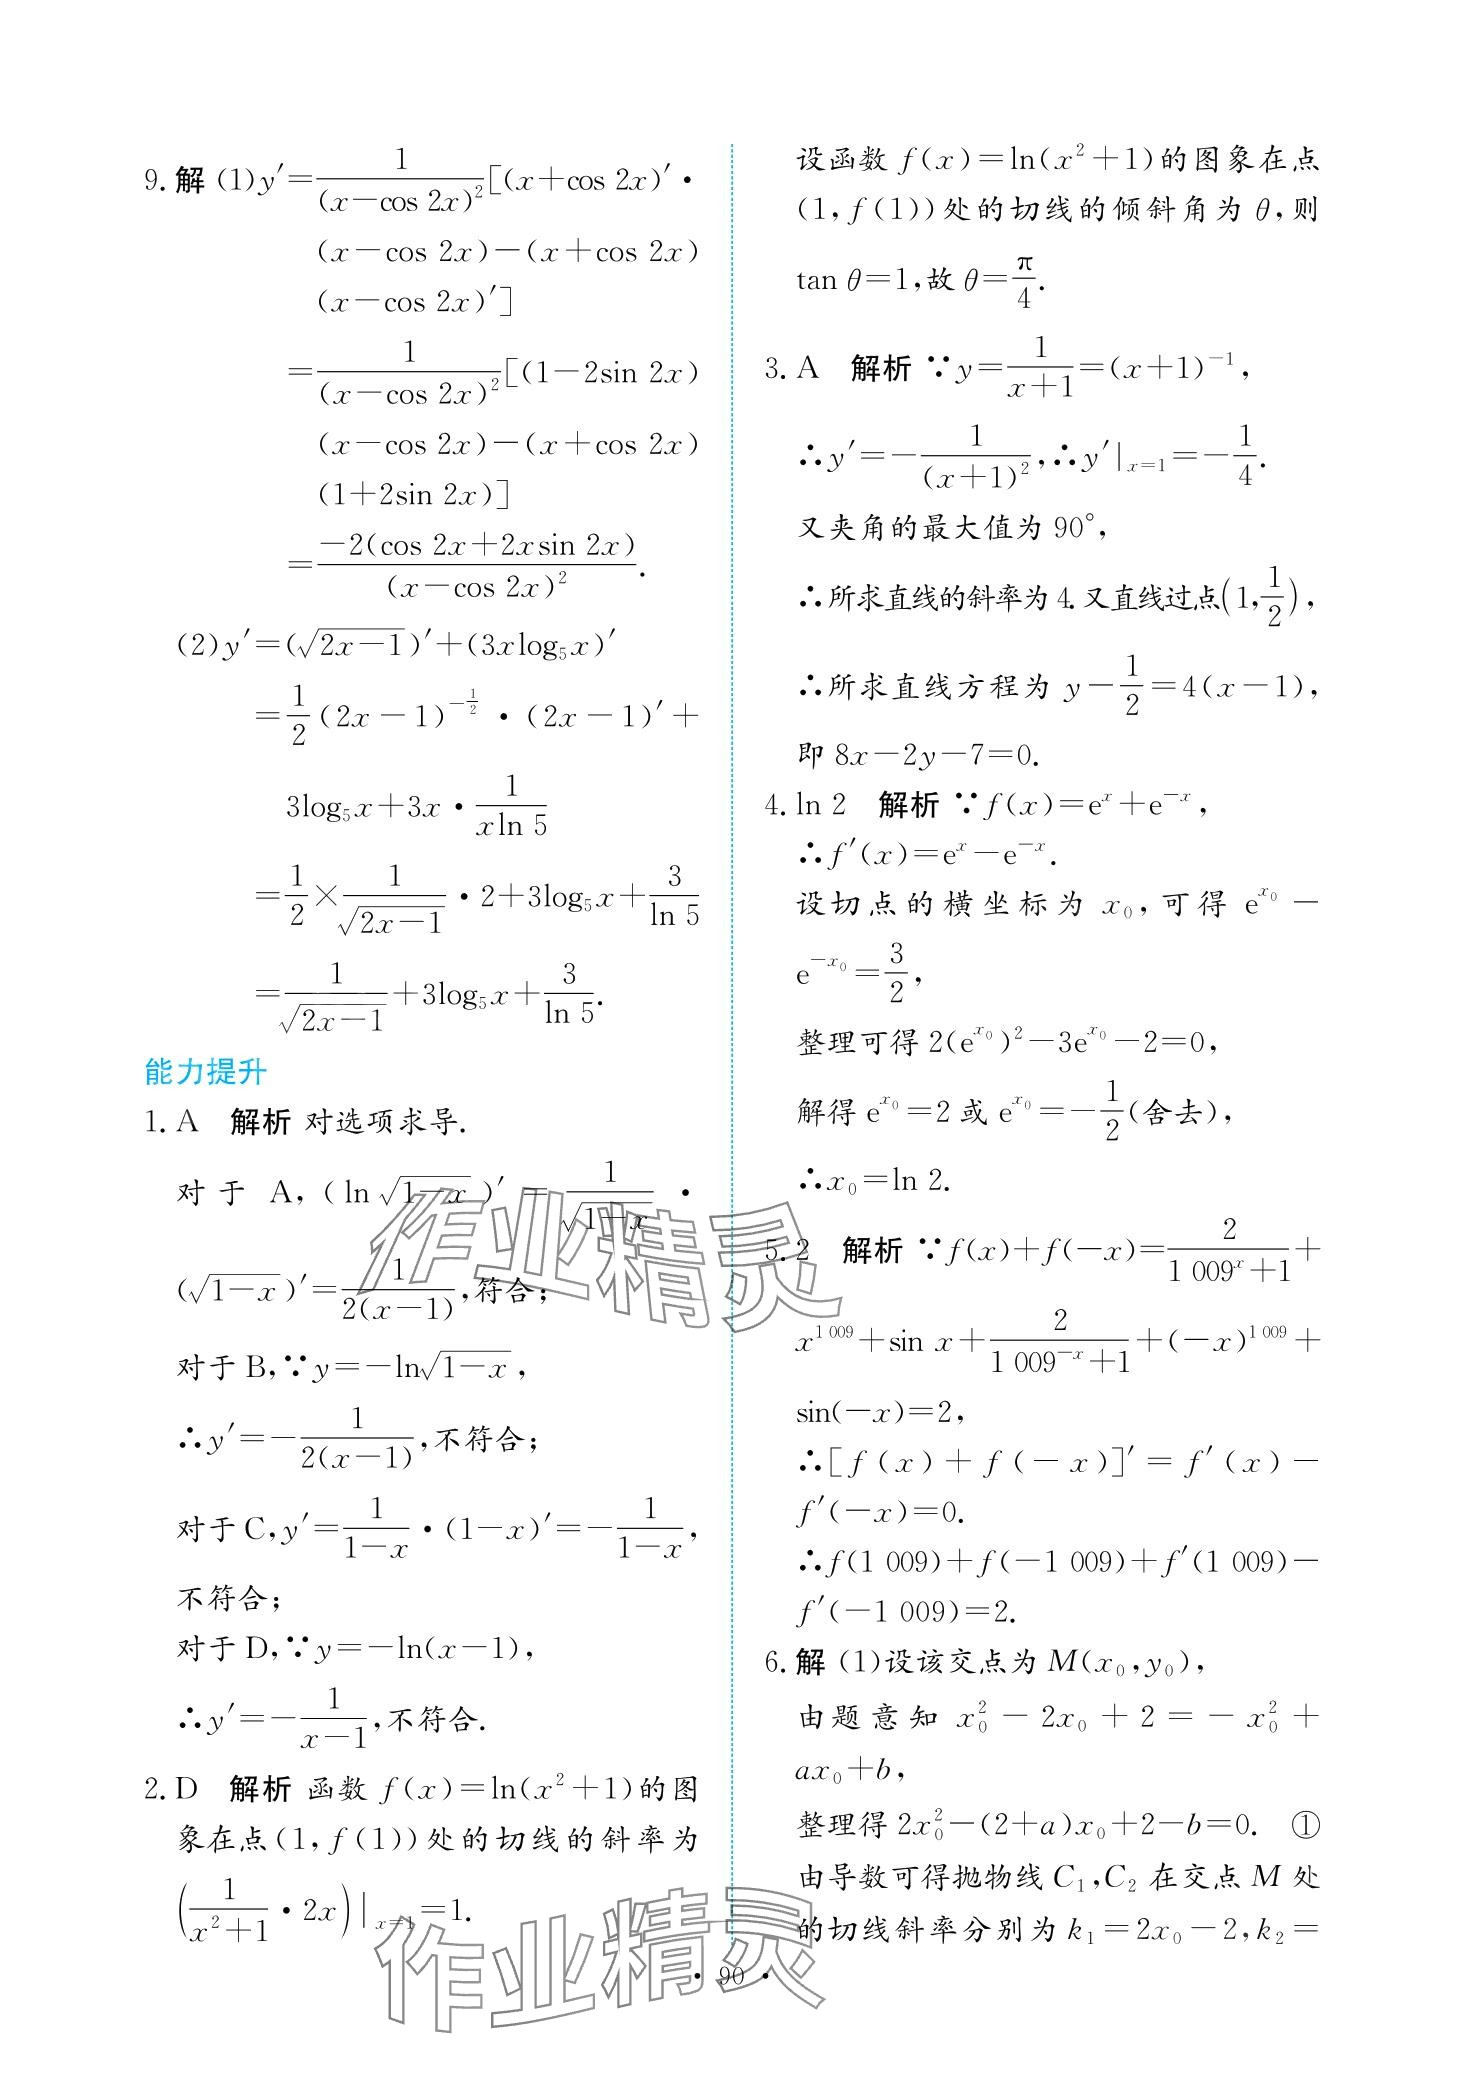 9. 解 (1)y′=1/(x−cos 2x)²[(x+cos 2x)′·
(x−cos 2x)−(x+cos 2x)
(x−cos 2x)′]
=1/(x−cos 2x)²[(1−2sin 2x)
(x−cos 2x)−(x+cos 2x)
(1+2sin 2x)]
=−2(cos 2x+2xsin 2x)/(x−cos 2x)².
(2)y′=(√(2x−1))′+(3xlog₅x)′
=1/2(2x−1)^(−1/2)·(2x−1)′+
3log₅x+3x·1/(xln 5)
=1/2×1/√(2x−1)·2+3log₅x+3/ln 5
=1/√(2x−1)+3log₅x+3/ln 5.
能力提升
1. A 解析 对选项求导.
对于 A,(ln√(1−x))′=1/√(1−x)·
(√(1−x))′=1/(2(x−1)),符合;
对于 B,∵y=−ln√(1−x),
∴y′=−1/(2(x−1)),不符合;
对于 C,y′=1/(1−x)·(1−x)′=−1/(1−x),
不符合;
对于 D,∵y=−ln(x−1),
∴y′=−1/(x−1),不符合.
2. D 解析 函数 f(x)=ln(x²+1)的图
象在点(1,f(1))处的切线的斜率为
(1/(x²+1)·2x)|ₓ₌₁=1.
设函数 f(x)=ln(x²+1)的图象在点
(1,f(1))处的切线的倾斜角为 θ,则
tan θ=1,故 θ=π/4.
3. A 解析 ∵y=1/(x+1)=(x+1)⁻¹,
∴y′=−1/(x+1)²,∴y′|ₓ₌₁=−1/4.
又夹角的最大值为 90°,
∴所求直线的斜率为 4.又直线过点(1,1/2),
∴所求直线方程为 y−1/2=4(x−1),
即 8x−2y−7=0.
4. ln 2 解析 ∵f(x)=eˣ+e⁻ˣ,
∴f′(x)=eˣ−e⁻ˣ.
设切点的横坐标为 x₀,可得 e^(x₀)−
e^(−x₀)=3/2,
整理可得 2(e^(x₀))²−3e^(x₀)−2=0,
解得 e^(x₀)=2 或 e^(x₀)=−1/2(舍去),
∴x₀=ln 2.
5. 2 解析 ∵f(x)+f(−x)=2/(1 009ˣ+1)+
x^(1 009)+sin x+2/(1 009⁻ˣ+1)+(−x)^(1 009)+
sin(−x)=2,
∴[f(x)+f(−x)]′=f′(x)−
f′(−x)=0.
∴f(1 009)+f(−1 009)+f′(1 009)−
f′(−1 009)=2.
6. 解 (1)设该交点为 M(x₀,y₀),
由题意知 x₀²−2x₀+2=−x₀²+
ax₀+b,
整理得 2x₀²−(2+a)x₀+2−b=0. ①
由导数可得抛物线 C₁,C₂ 在交点 M 处
的切线斜率分别为 k₁=2x₀−2,k₂=
· 90 ·
作业精灵
作业精灵